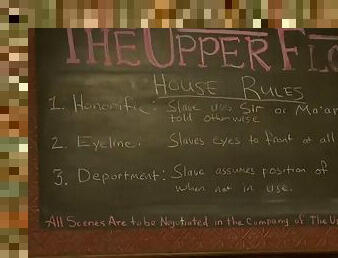 THE UPPER FLO
HOUSE RULES
1. Honorific: Slave uses Sir or Ma'am
told otherwise
2. Eyeline: Slaves eyes to front at all
3. Deportment: Slave assumes position of
when not in use.
All Scenes Are to be Negotiated in the Company of The Up